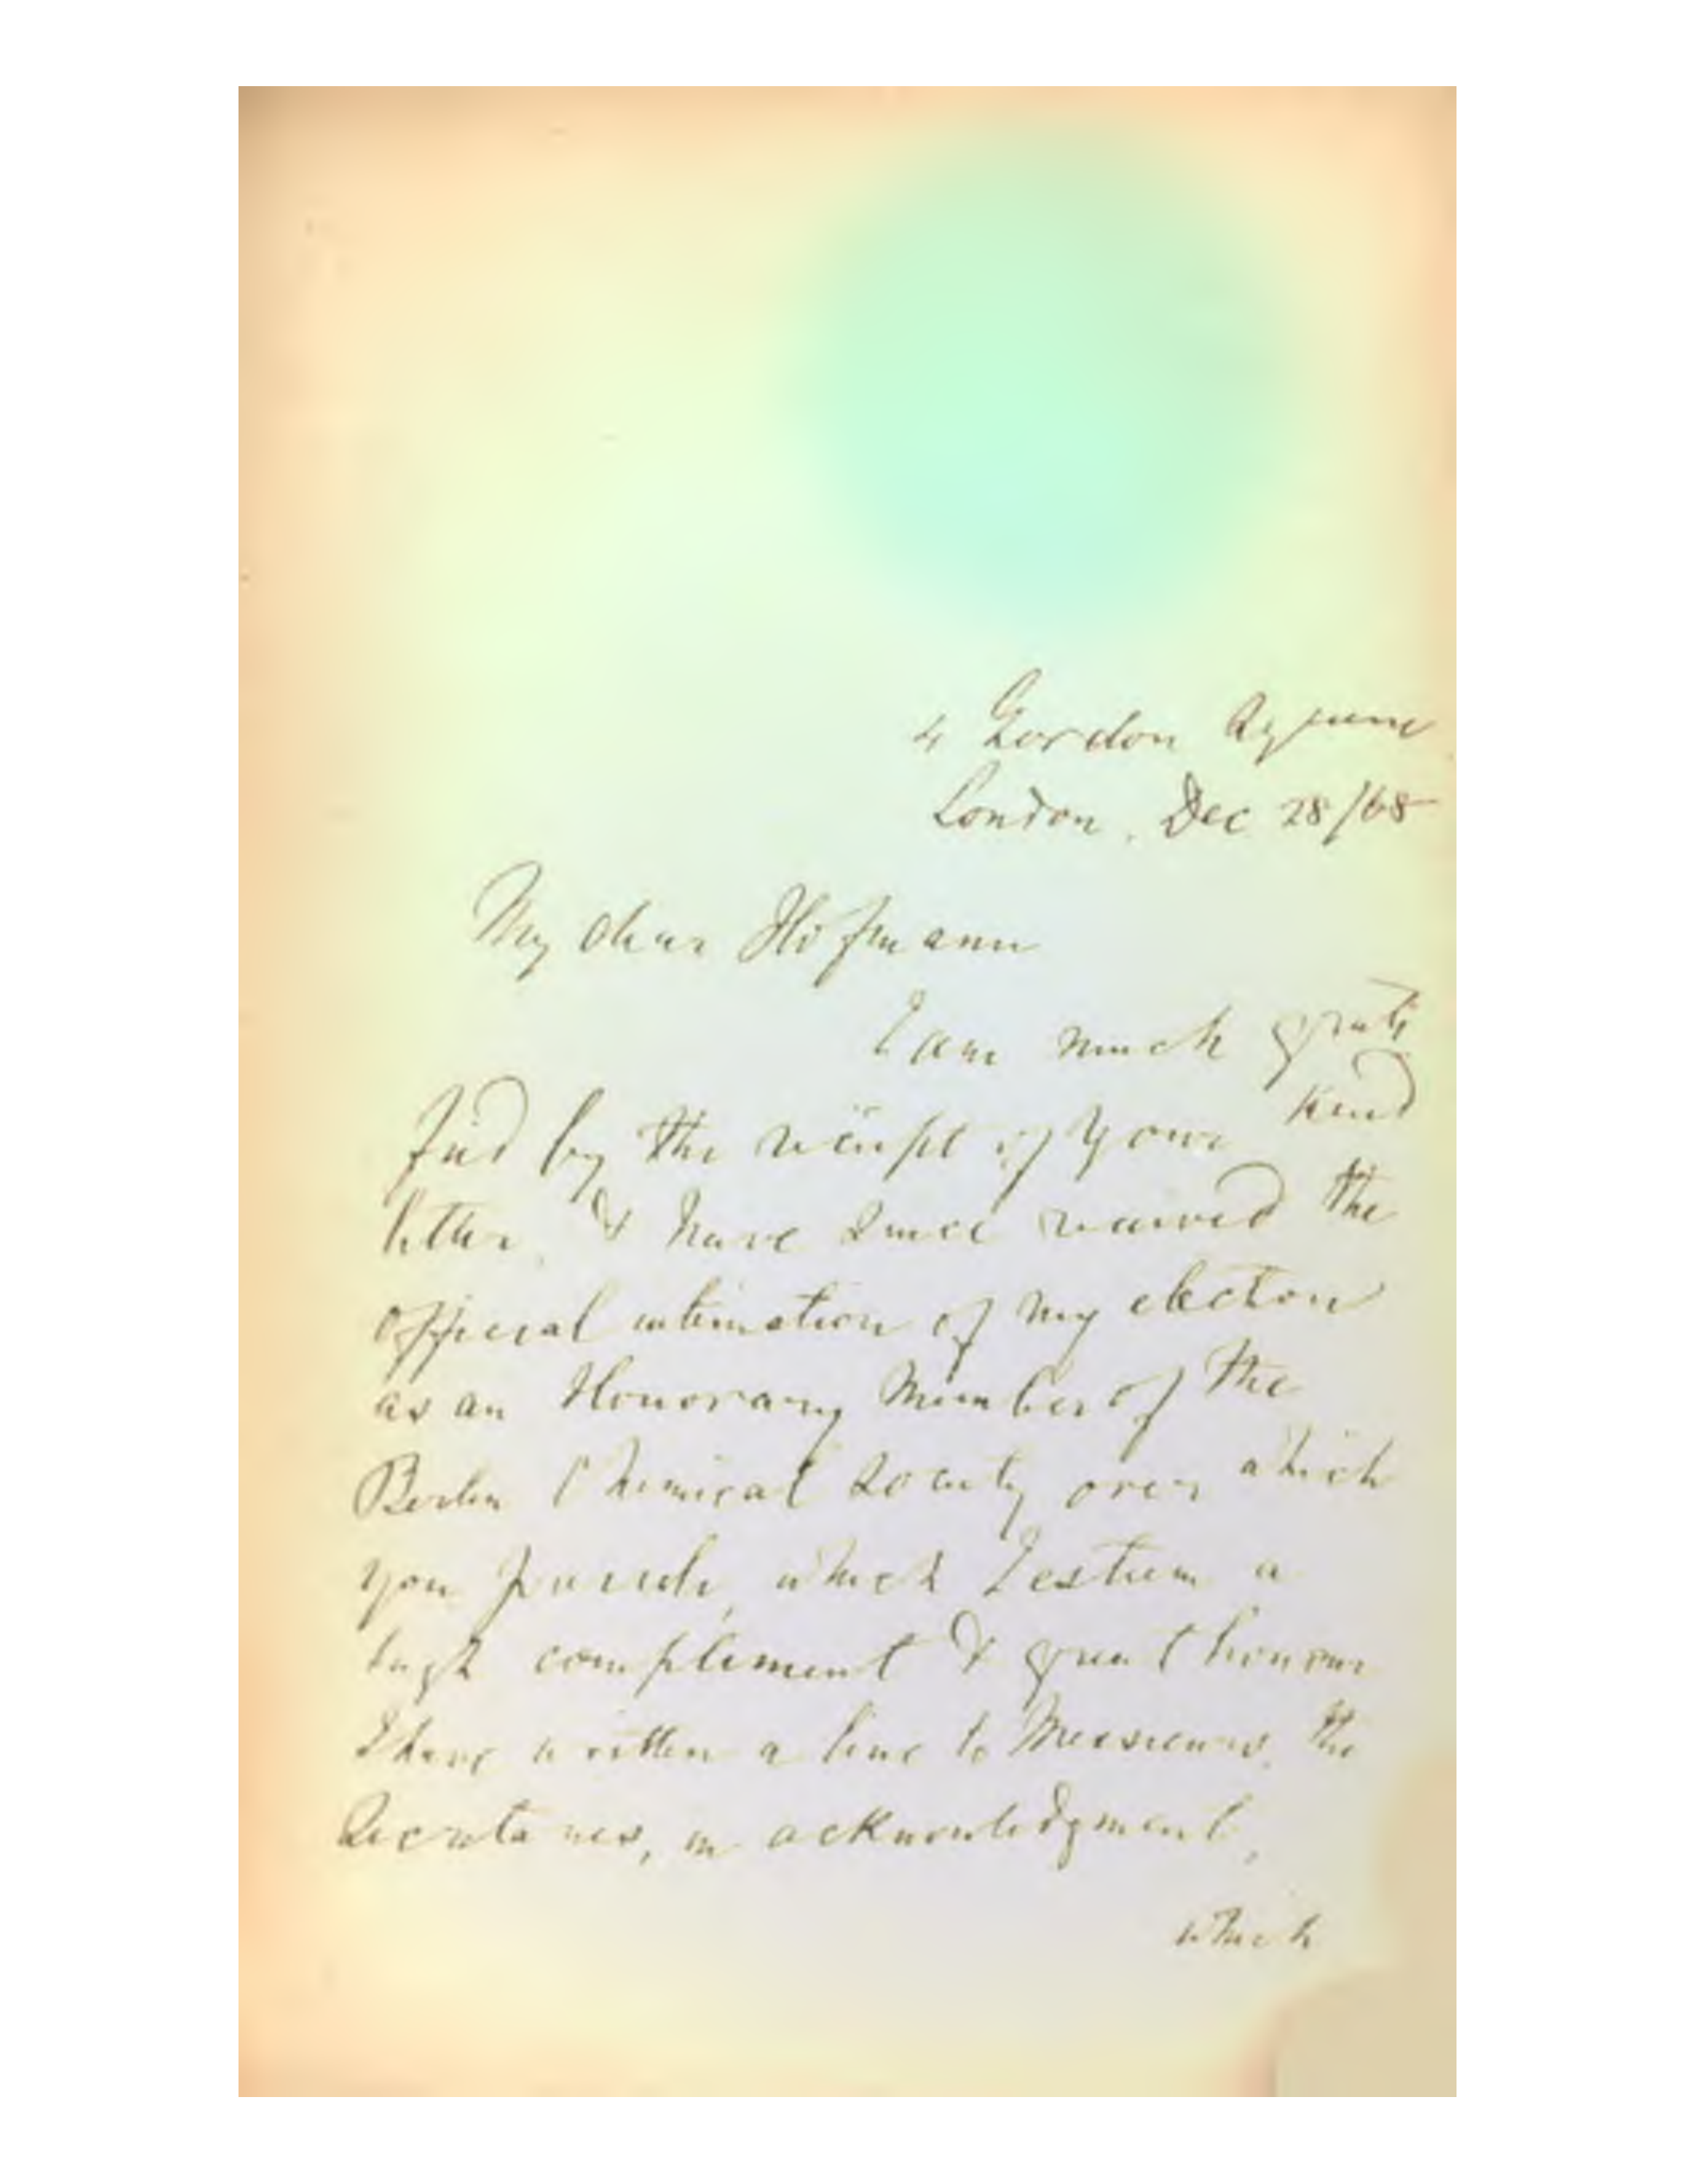 4 Gordon Square
London, Dec 28/68
My dear Hofmann
I am much grati
fied by the receipt of your kind
letter, & have since received the
official intimation of my election
as an Honorary Member of the
Berlin Chemical Society over which
you preside, which I esteem a
high compliment & great honour
I have written a line to Messieurs, the
Secretaries, in acknowledgment,
which